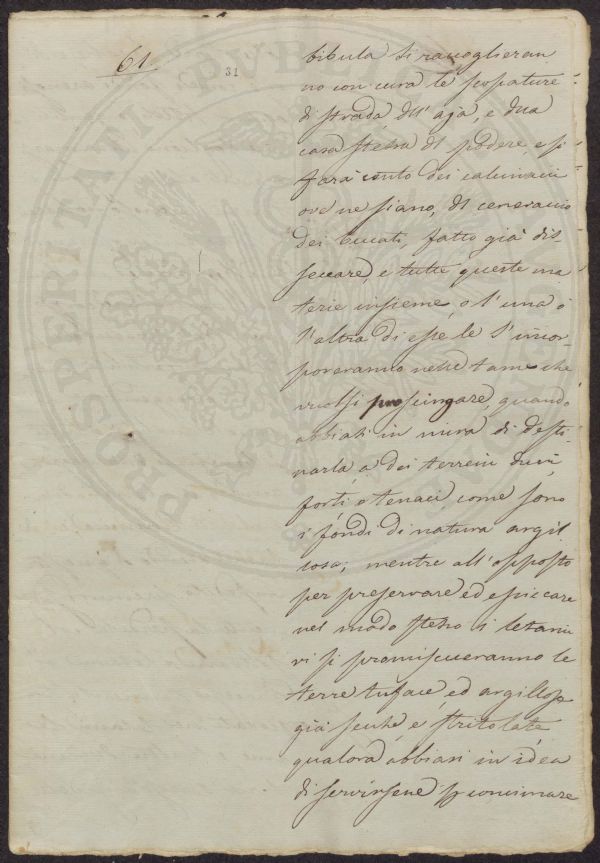 61
31
bibula si raccoglieran
no con cura le scopature
di strada dell'aja, e dalla
casa stessa del podere, e si
farà conto dei calcinacci
ove ne siano, del ceneraccio
dei bucati, fatto già dis
seccare, e tutte queste ma
terie insieme, o l'una o
l'altra di esse le s'incor
poreranno nelle tame che
vuolsi prosciugare, quando
abbiasi in mira di desti
narla a dei terreni duri,
forti, o tenaci come sono
i fondi di natura argil
losa; mentre all'opposto
per preservare ed essiccare
nel modo stesso i letami
vi si promiscueranno le
terre tufacee, ed argillose
già secche e stritolate,
qualora abbiasi in idea
di servirsene p concimare
PROSPERITATI PVBLICAE